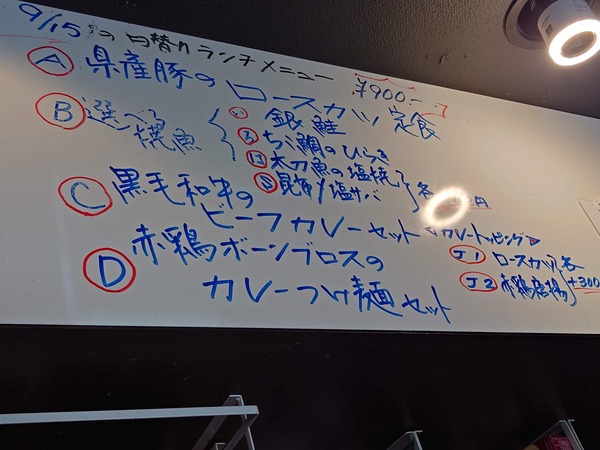 9/15の日替りランチメニュー
A 県産豚のロースカツ定食 ¥900-
B 選べる焼魚
い 銀鮭
ろ ちご鯛のひらき
は 太刀魚の塩焼
S 昆布〆塩サバ 各 円
C 黒毛和牛のビーフカレーセット
カレートッピング
J1 ロースカツ 各
J2 赤鶏唐揚 +300
D 赤鶏ボーンブロスの
カレーつけ麺セット